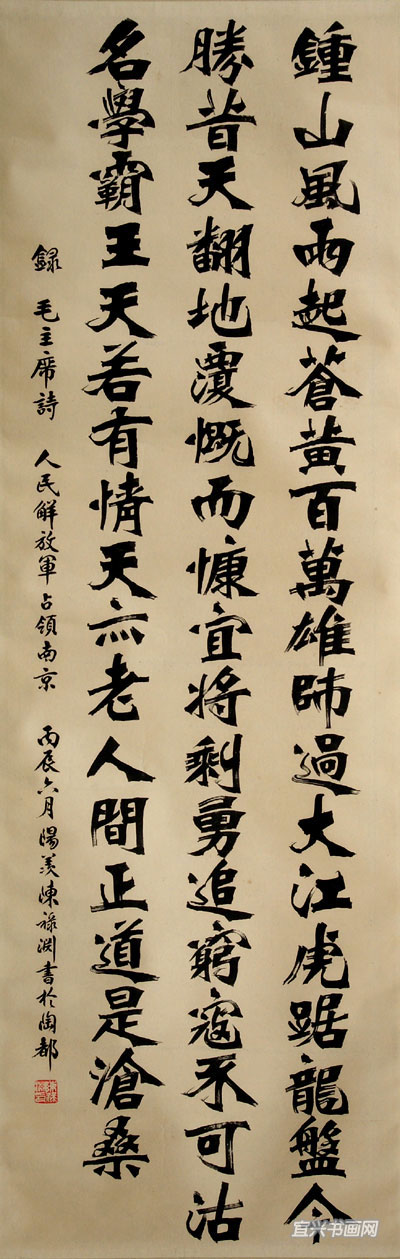 鍾山風雨起蒼黃百萬雄師過大江虎踞龍盤今
勝昔天翻地覆慨而慷宜將剩勇追窮寇不可沽
名學霸王天若有情天亦老人間正道是滄桑
録 毛主席詩 人民解放軍占領南京 丙辰六月陽羨陳祿渊書於陶都
宜兴书画网